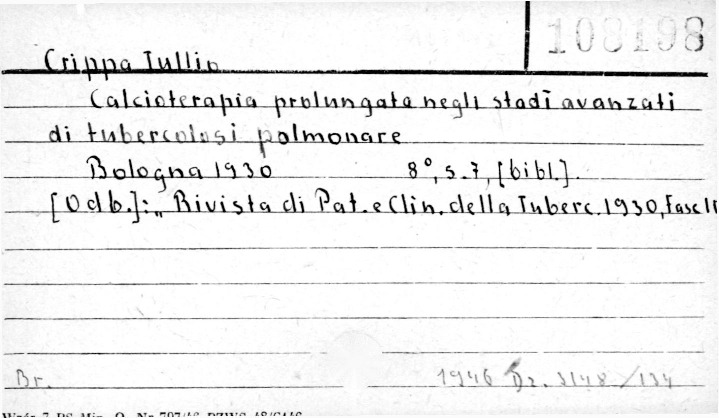 108198
Crippa Tullio
Calcioterapia prolungata negli stadî avanzati
di tubercolosi polmonare
Bologna 1930 8°, s. 7, [bibl.].
[Odb.]: „Rivista di Pat. e Clin. della Tuberc. 1930, Fasc II
Br. 1946 Dz. 3148/134